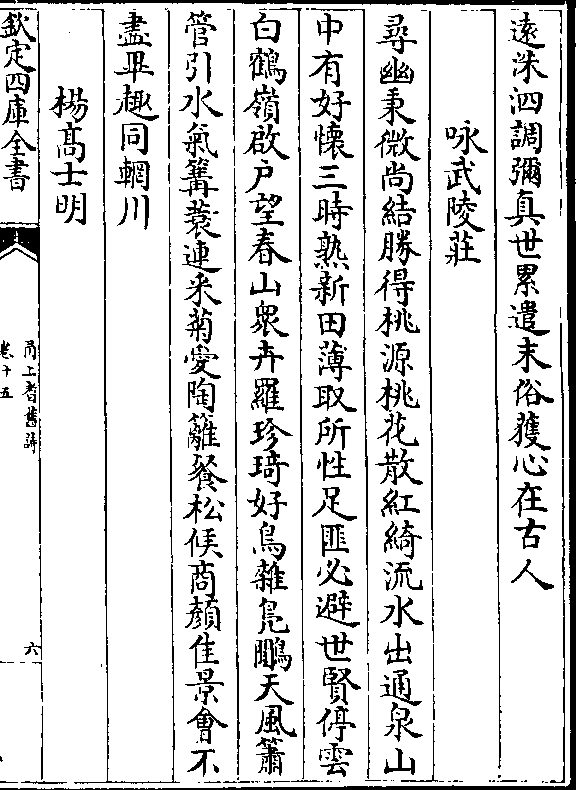 遠洙泗調彌真世累遣末俗獲心在古人
咏武陵莊
尋幽秉微尚結勝得桃源桃花散紅綺流水出通泉山
中有好懷三時熟新田薄取所性足匪必避世賢停雲
白鶴嶺啟户望春山衆卉羅珍琦好鳥雜鳧鷴天風簫
管引水氣篝蓑連采菊愛陶籬餐松候商顔佳景會不
盡畢趣同輞川
楊髙士明
欽定四庫全書
甬上耆舊詩
卷十五
六